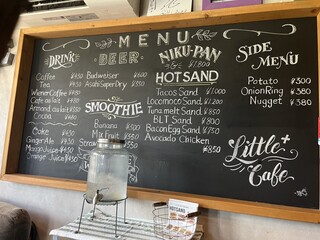 MENU
DRINK
Coffee ¥450
Tea ¥450
Wiener Coffee
Cafe au lait ¥450
Almond au lait
Cocoa ¥480
Coke ¥450
Ginger Ale ¥450
Mango Juice ¥450
Orange Juice
BEER
Budweiser ¥600
Asahi Super Dry
SMOOTHIE
Banana
Mix Fruit
NIKU-PAN
HOT SAND
Tacos Sand ¥1,000
Locomoco Sand ¥1,200
Tuna melt Sand ¥850
BLT Sand ¥800
Bacon Egg Sand ¥750
Avocado Chicken
¥850
SIDE
MENU
Potato ¥300
Onion Ring ¥380
Nugget ¥380
Little+
Cafe